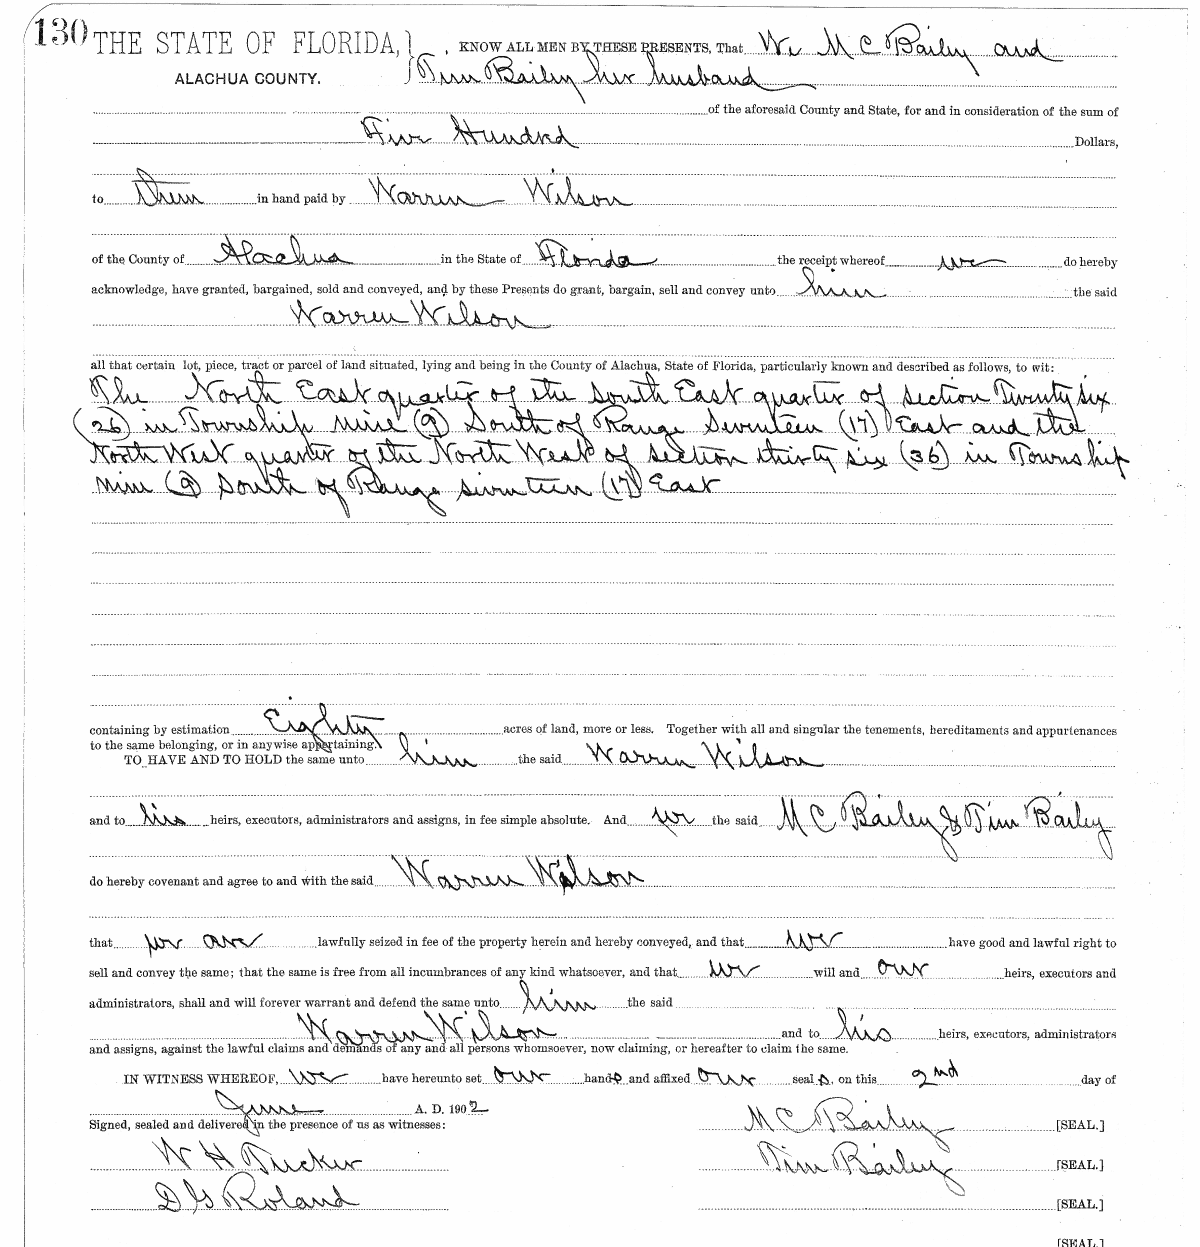 130 THE STATE OF FLORIDA, KNOW ALL MEN BY THESE PRESENTS, That We M C Bailey and
ALACHUA COUNTY. Tim Bailey her husband
of the aforesaid County and State, for and in consideration of the sum of
Five Hundred Dollars,
to them in hand paid by Warren Wilson
of the County of Alachua in the State of Florida the receipt whereof we do hereby
acknowledge, have granted, bargained, sold and conveyed, and by these Presents do grant, bargain, sell and convey unto him the said
Warren Wilson
all that certain lot, piece, tract or parcel of land situated, lying and being in the County of Alachua, State of Florida, particularly known and described as follows, to wit:
The North East quarter of the South East quarter of section Twenty six
(26) in Township nine (9) South of Range Seventeen (17) East and the
North West quarter of the North West of section thirty six (36) in Township
nine (9) South of Range seventeen (17) East
containing by estimation Eighty acres of land, more or less. Together with all and singular the tenements, hereditaments and appurtenances
to the same belonging, or in anywise appertaining.
TO HAVE AND TO HOLD the same unto him the said Warren Wilson
and to his heirs, executors, administrators and assigns, in fee simple absolute. And we the said M C Bailey & Tim Bailey
do hereby covenant and agree to and with the said Warren Wilson
that we are lawfully seized in fee of the property herein and hereby conveyed, and that we have good and lawful right to
sell and convey the same; that the same is free from all incumbrances of any kind whatsoever, and that we will and our heirs, executors and
administrators, shall and will forever warrant and defend the same unto him the said
Warren Wilson and to his heirs, executors, administrators
and assigns, against the lawful claims and demands of any and all persons whomsoever, now claiming, or hereafter to claim the same.
IN WITNESS WHEREOF, we have hereunto set our hands and affixed our seal s. on this 2nd day of
June A. D. 1902
Signed, sealed and delivered in the presence of us as witnesses: M C Bailey [SEAL.]
W H Tucker Tim Bailey [SEAL.]
D G Roland [SEAL.]
[SEAL.]